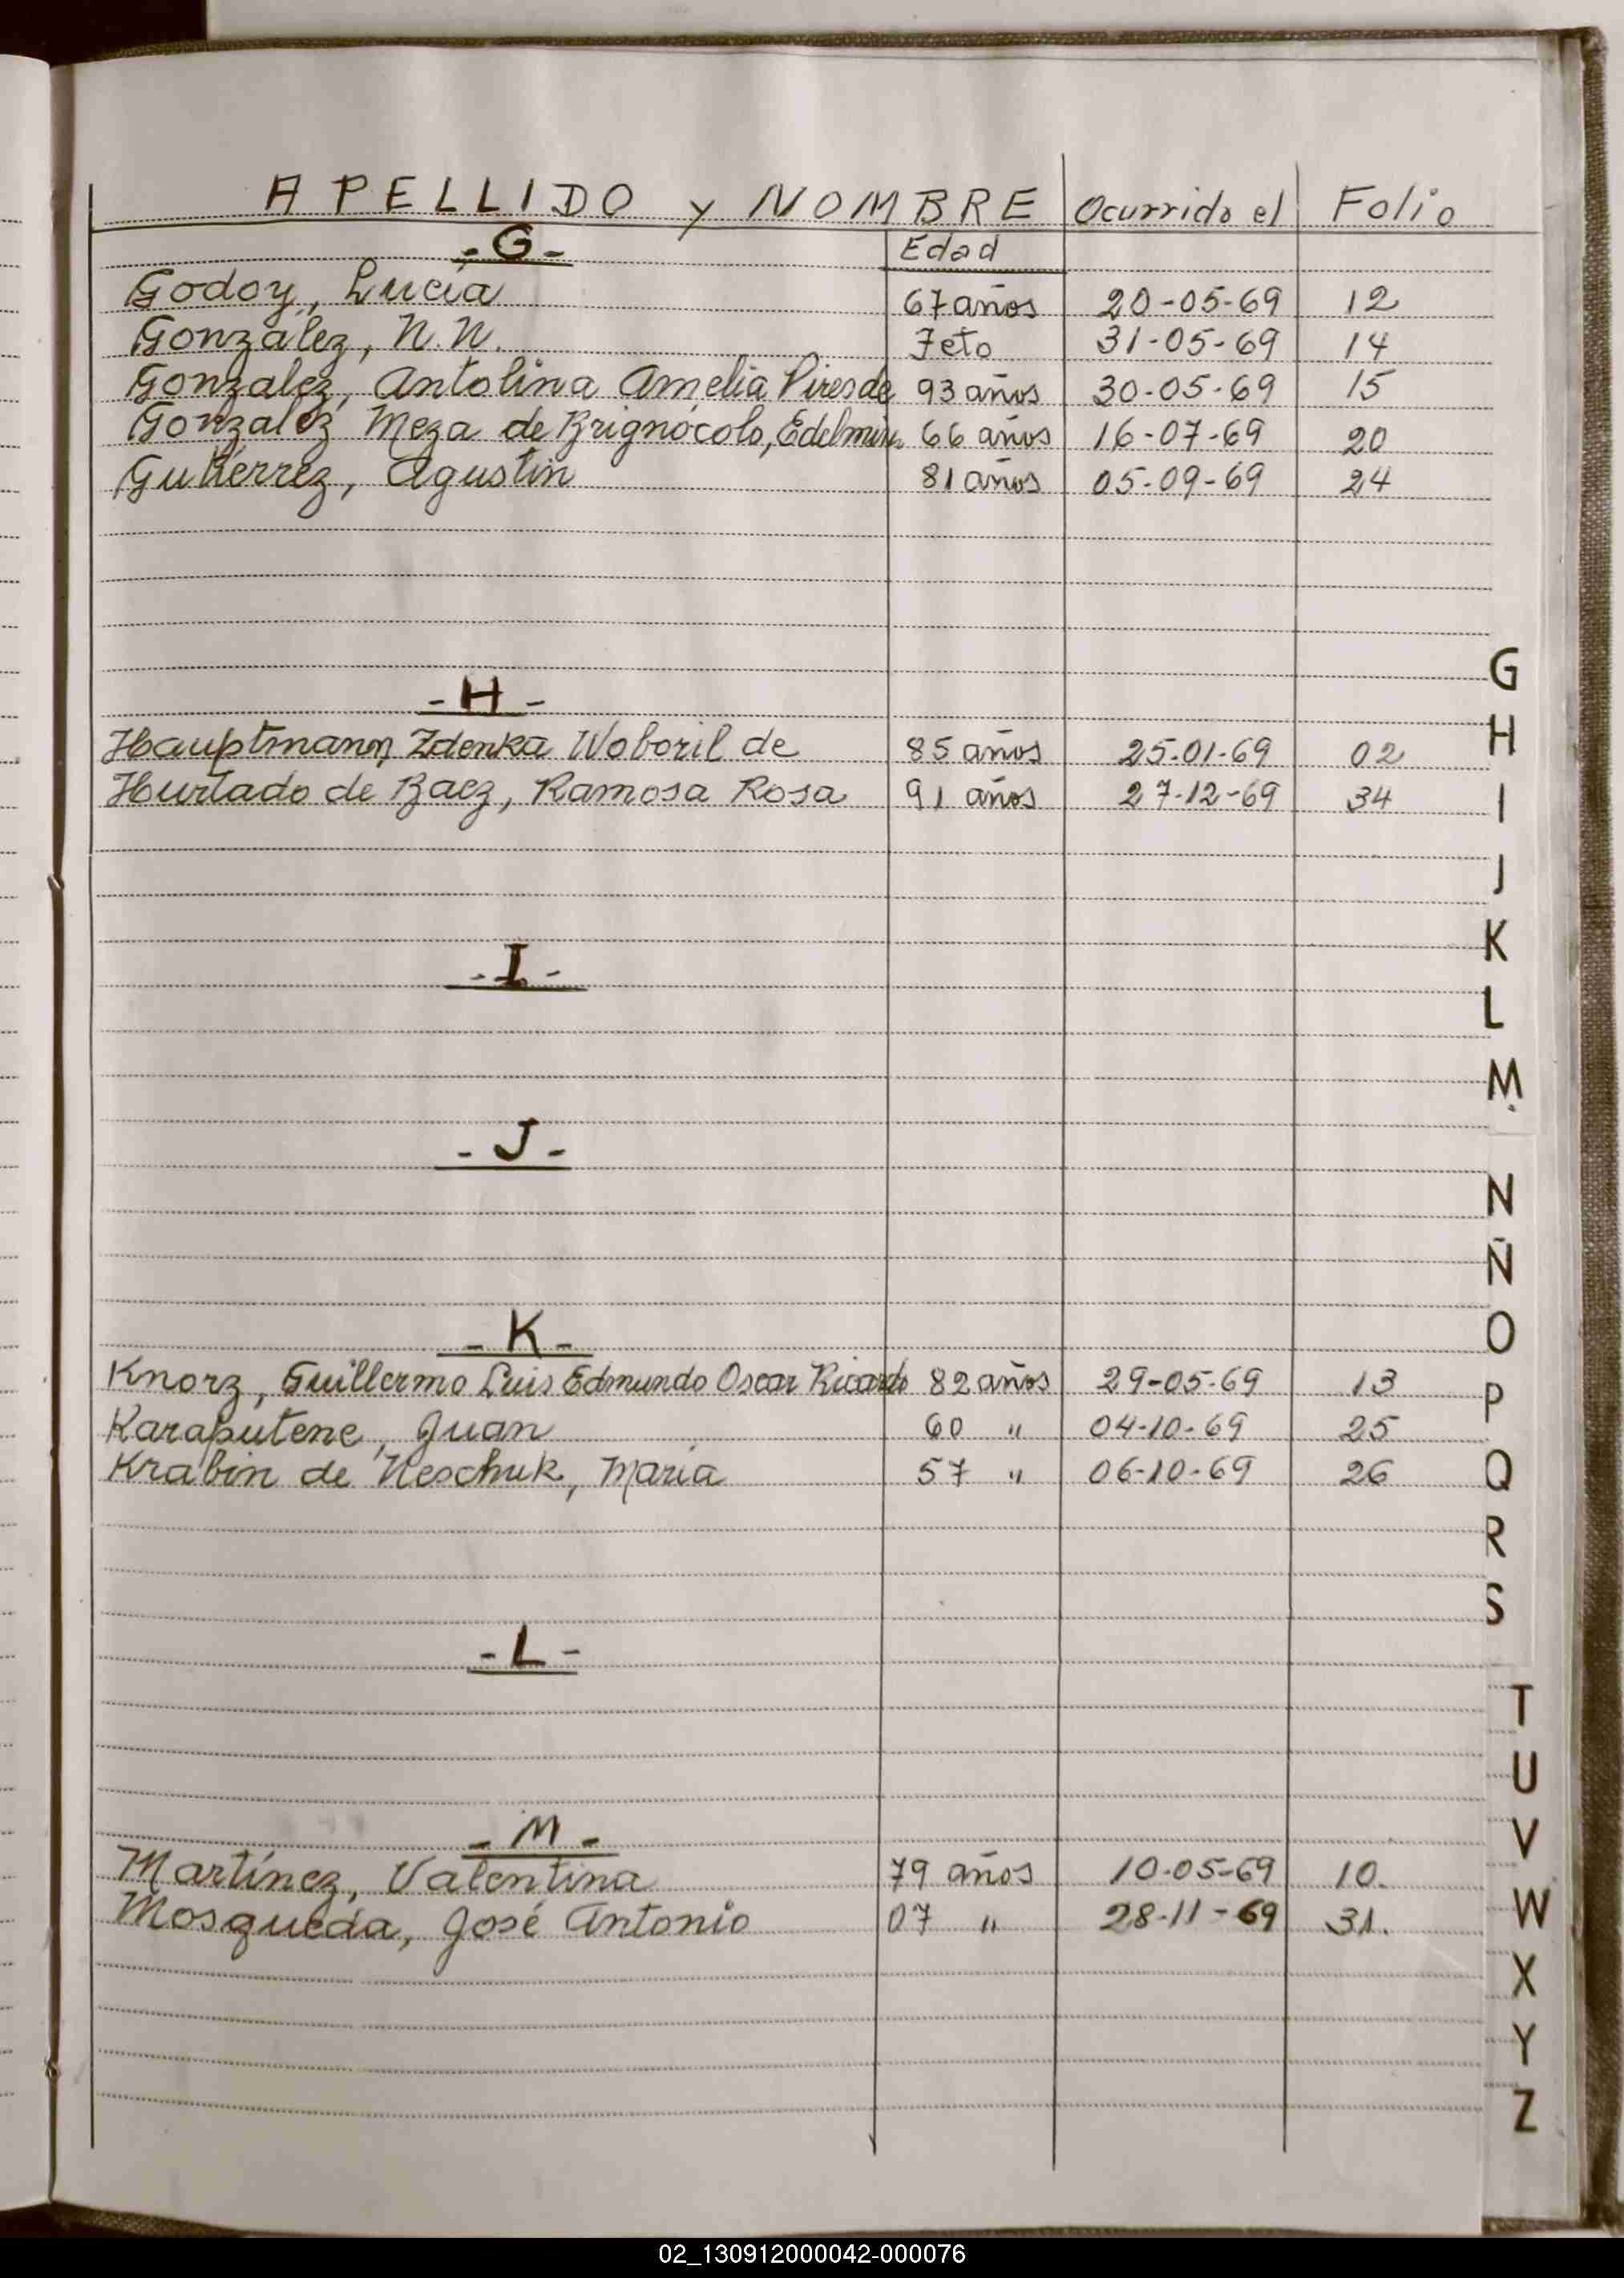 APELLIDO y NOMBRE Ocurrido el Folio
- G - Edad
Godoy, Lucía 67 años 20-05-69 12
González, N.N. Feto 31-05-69 14
González, Antolina Amelia Pires de 93 años 30-05-69 15
González Meza de Brignócolo, Edelmira 66 años 16-07-69 20
Gutiérrez, Agustín 81 años 05-09-69 24
- H -
Hauptmann, Zdenka Woboril de 85 años 25-01-69 02
Hurtado de Baez, Ramosa Rosa 91 años 27-12-69 34
- I -
- J -
- K -
Knorz, Guillermo Luis Edmundo Oscar Ricardo 82 años 29-05-69 13
Karaputene, Juan 60 " 04-10-69 25
Krabin de Neschuk, María 57 " 06-10-69 26
- L -
- M -
Martínez, Valentina 79 años 10-05-69 10.
Mosqueda, José Antonio 07 " 28-11-69 31.
G
H
I
J
K
L
M
N
Ñ
O
P
Q
R
S
T
U
V
W
X
Y
Z
02_130912000042-000076